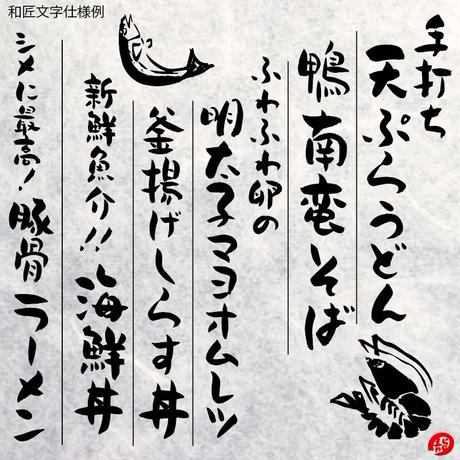 和匠文字仕様例
手打ち
天ぷらうどん
鴨南蛮そば
ふわふわ卵の
明太子マヨオムレツ
釜揚げしらす丼
新鮮魚介!!海鮮丼
シメに最高!豚骨ラーメン